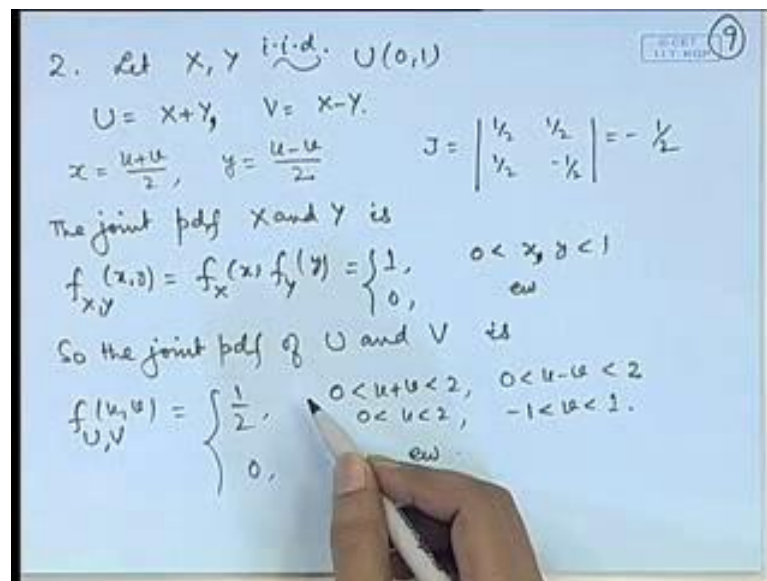 9
© CET
I.I.T. KGP
2. Let X, Y i.i.d. U(0,1)
U = X+Y, V = X-Y.
x = u+v/2, y = u-v/2. J = | 1/2 1/2 | = - 1/2
| 1/2 -1/2 |
The joint pdf X and Y is
f_{X,Y}(x,y) = f_X(x) f_Y(y) = { 1, 0 < x, y < 1
0, ew
So the joint pdf of U and V is
f_{U,V}(u,v) = { 1/2, 0 < u+v < 2, 0 < u-v < 2
0 < u < 2, -1 < v < 1.
0, ew.